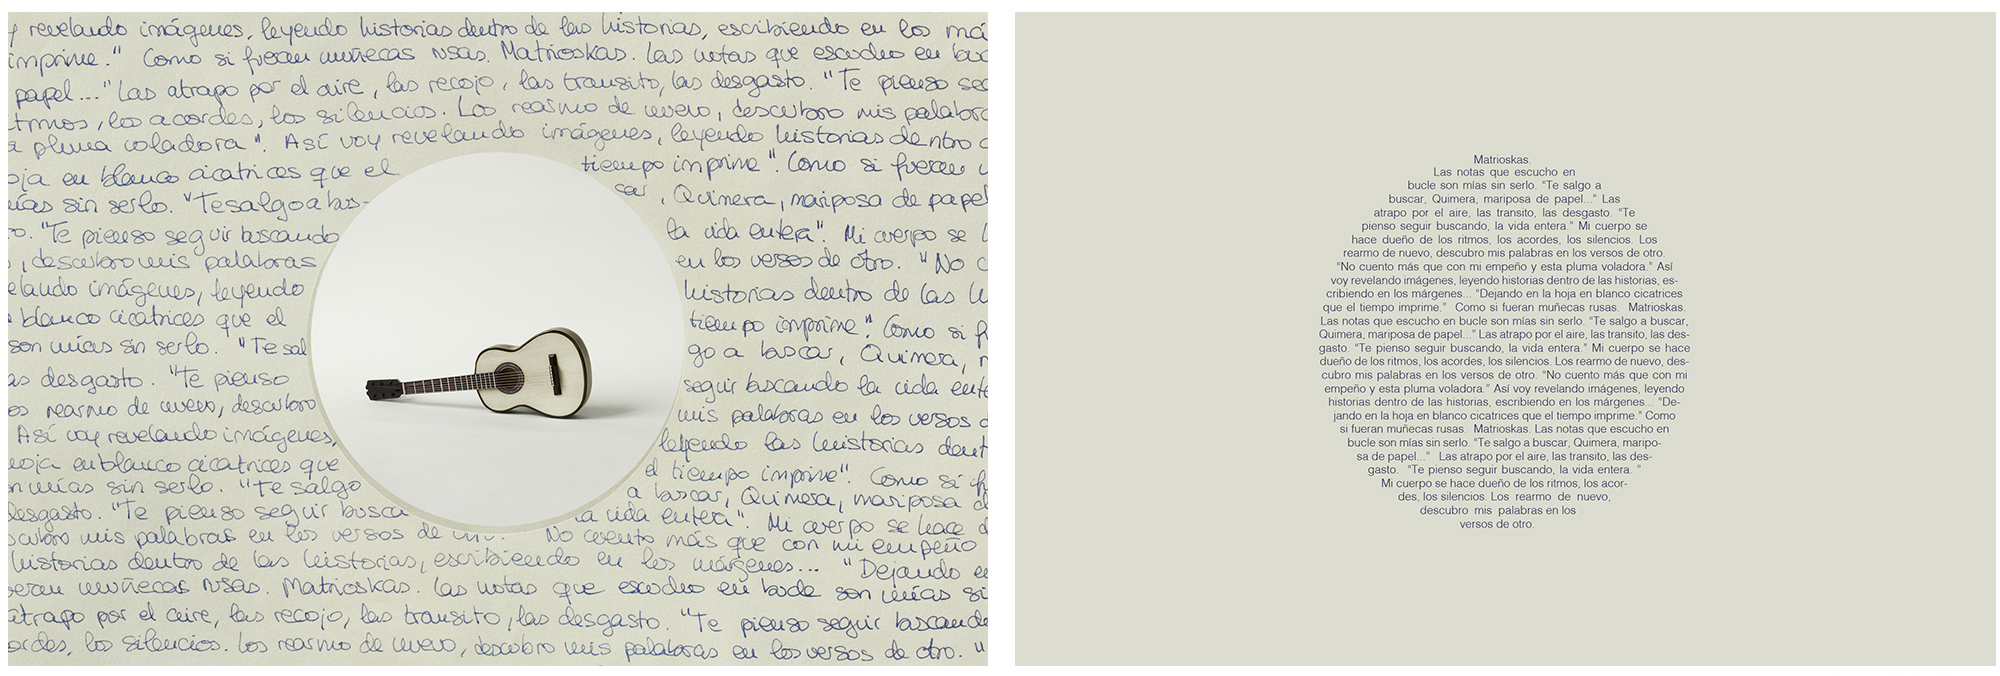 y revelando imágenes, leyendo historias dentro de las historias, escribiendo en los má
imprime." Como si fueran muñecas rusas. Matrioskas. Las notas que escucho en buc
papel..." Las atrapo por el aire, las recojo, las transito, las desgasto. "Te pienso seg
itmos, los acordes, los silencios. Los rearmo de nuevo, descubro mis palabra
a pluma voladora". Así voy revelando imágenes, leyendo historias dentro d
oja en blanco cicatrices que el tiempo imprime". Como si fueran
mías sin serlo. "Te salgo a bus- car, Quimera, mariposa de papel
o. "Te pienso seguir buscando la vida entera". Mi cuerpo se
, descubro mis palabras en los versos de otro. "No c
elando imágenes, leyendo historias dentro de las h
blanco cicatrices que el tiempo imprime". Como si f
son mías sin serlo. "Te sal go a buscar, Quimera,
as desgasto. "Te pienso seguir buscando la vida ente
os rearmo de nuevo, descubro mis palabras en los versos d
Así voy revelando imágenes, leyendo las historias dent
hoja en blanco cicatrices que el tiempo imprime". Como si f
n mías sin serlo. "Te salgo a buscar, Quimera, mariposa d
desgasto. "Te pienso seguir busca la vida entera". Mi cuerpo se hace d
scubro mis palabras en los versos de No cuento más que con mi empeño
historias dentro de las historias, escribiendo en los márgenes... "Dejando en
ueran muñecas rusas. Matrioskas. Las notas que escucho en bucle son mías si
atrapo por el aire, las recojo, las transito, las desgasto. "Te pienso seguir buscando
ordes, los silencios. Los rearmo de nuevo, descubro mis palabras en los versos de otro. "
Matrioskas.
Las notas que escucho en
bucle son mías sin serlo. "Te salgo a
buscar, Quimera, mariposa de papel..." Las
atrapo por el aire, las transito, las desgasto. "Te
pienso seguir buscando, la vida entera." Mi cuerpo se
hace dueño de los ritmos, los acordes, los silencios. Los
rearmo de nuevo, descubro mis palabras en los versos de otro.
"No cuento más que con mi empeño y esta pluma voladora." Así
voy revelando imágenes, leyendo historias dentro de las historias, es-
cribiendo en los márgenes... "Dejando en la hoja en blanco cicatrices
que el tiempo imprime." Como si fueran muñecas rusas. Matrioskas.
Las notas que escucho en bucle son mías sin serlo. "Te salgo a buscar,
Quimera, mariposa de papel..." Las atrapo por el aire, las transito, las des-
gasto. "Te pienso seguir buscando, la vida entera." Mi cuerpo se hace
dueño de los ritmos, los acordes, los silencios. Los rearmo de nuevo, des-
cubro mis palabras en los versos de otro. "No cuento más que con mi
empeño y esta pluma voladora." Así voy revelando imágenes, leyendo
historias dentro de las historias, escribiendo en los márgenes... "De-
jando en la hoja en blanco cicatrices que el tiempo imprime." Como
si fueran muñecas rusas. Matrioskas. Las notas que escucho en
bucle son mías sin serlo. "Te salgo a buscar, Quimera, maripo-
sa de papel..." Las atrapo por el aire, las transito, las des-
gasto. "Te pienso seguir buscando, la vida entera. "
Mi cuerpo se hace dueño de los ritmos, los acor-
des, los silencios. Los rearmo de nuevo,
descubro mis palabras en los
versos de otro.